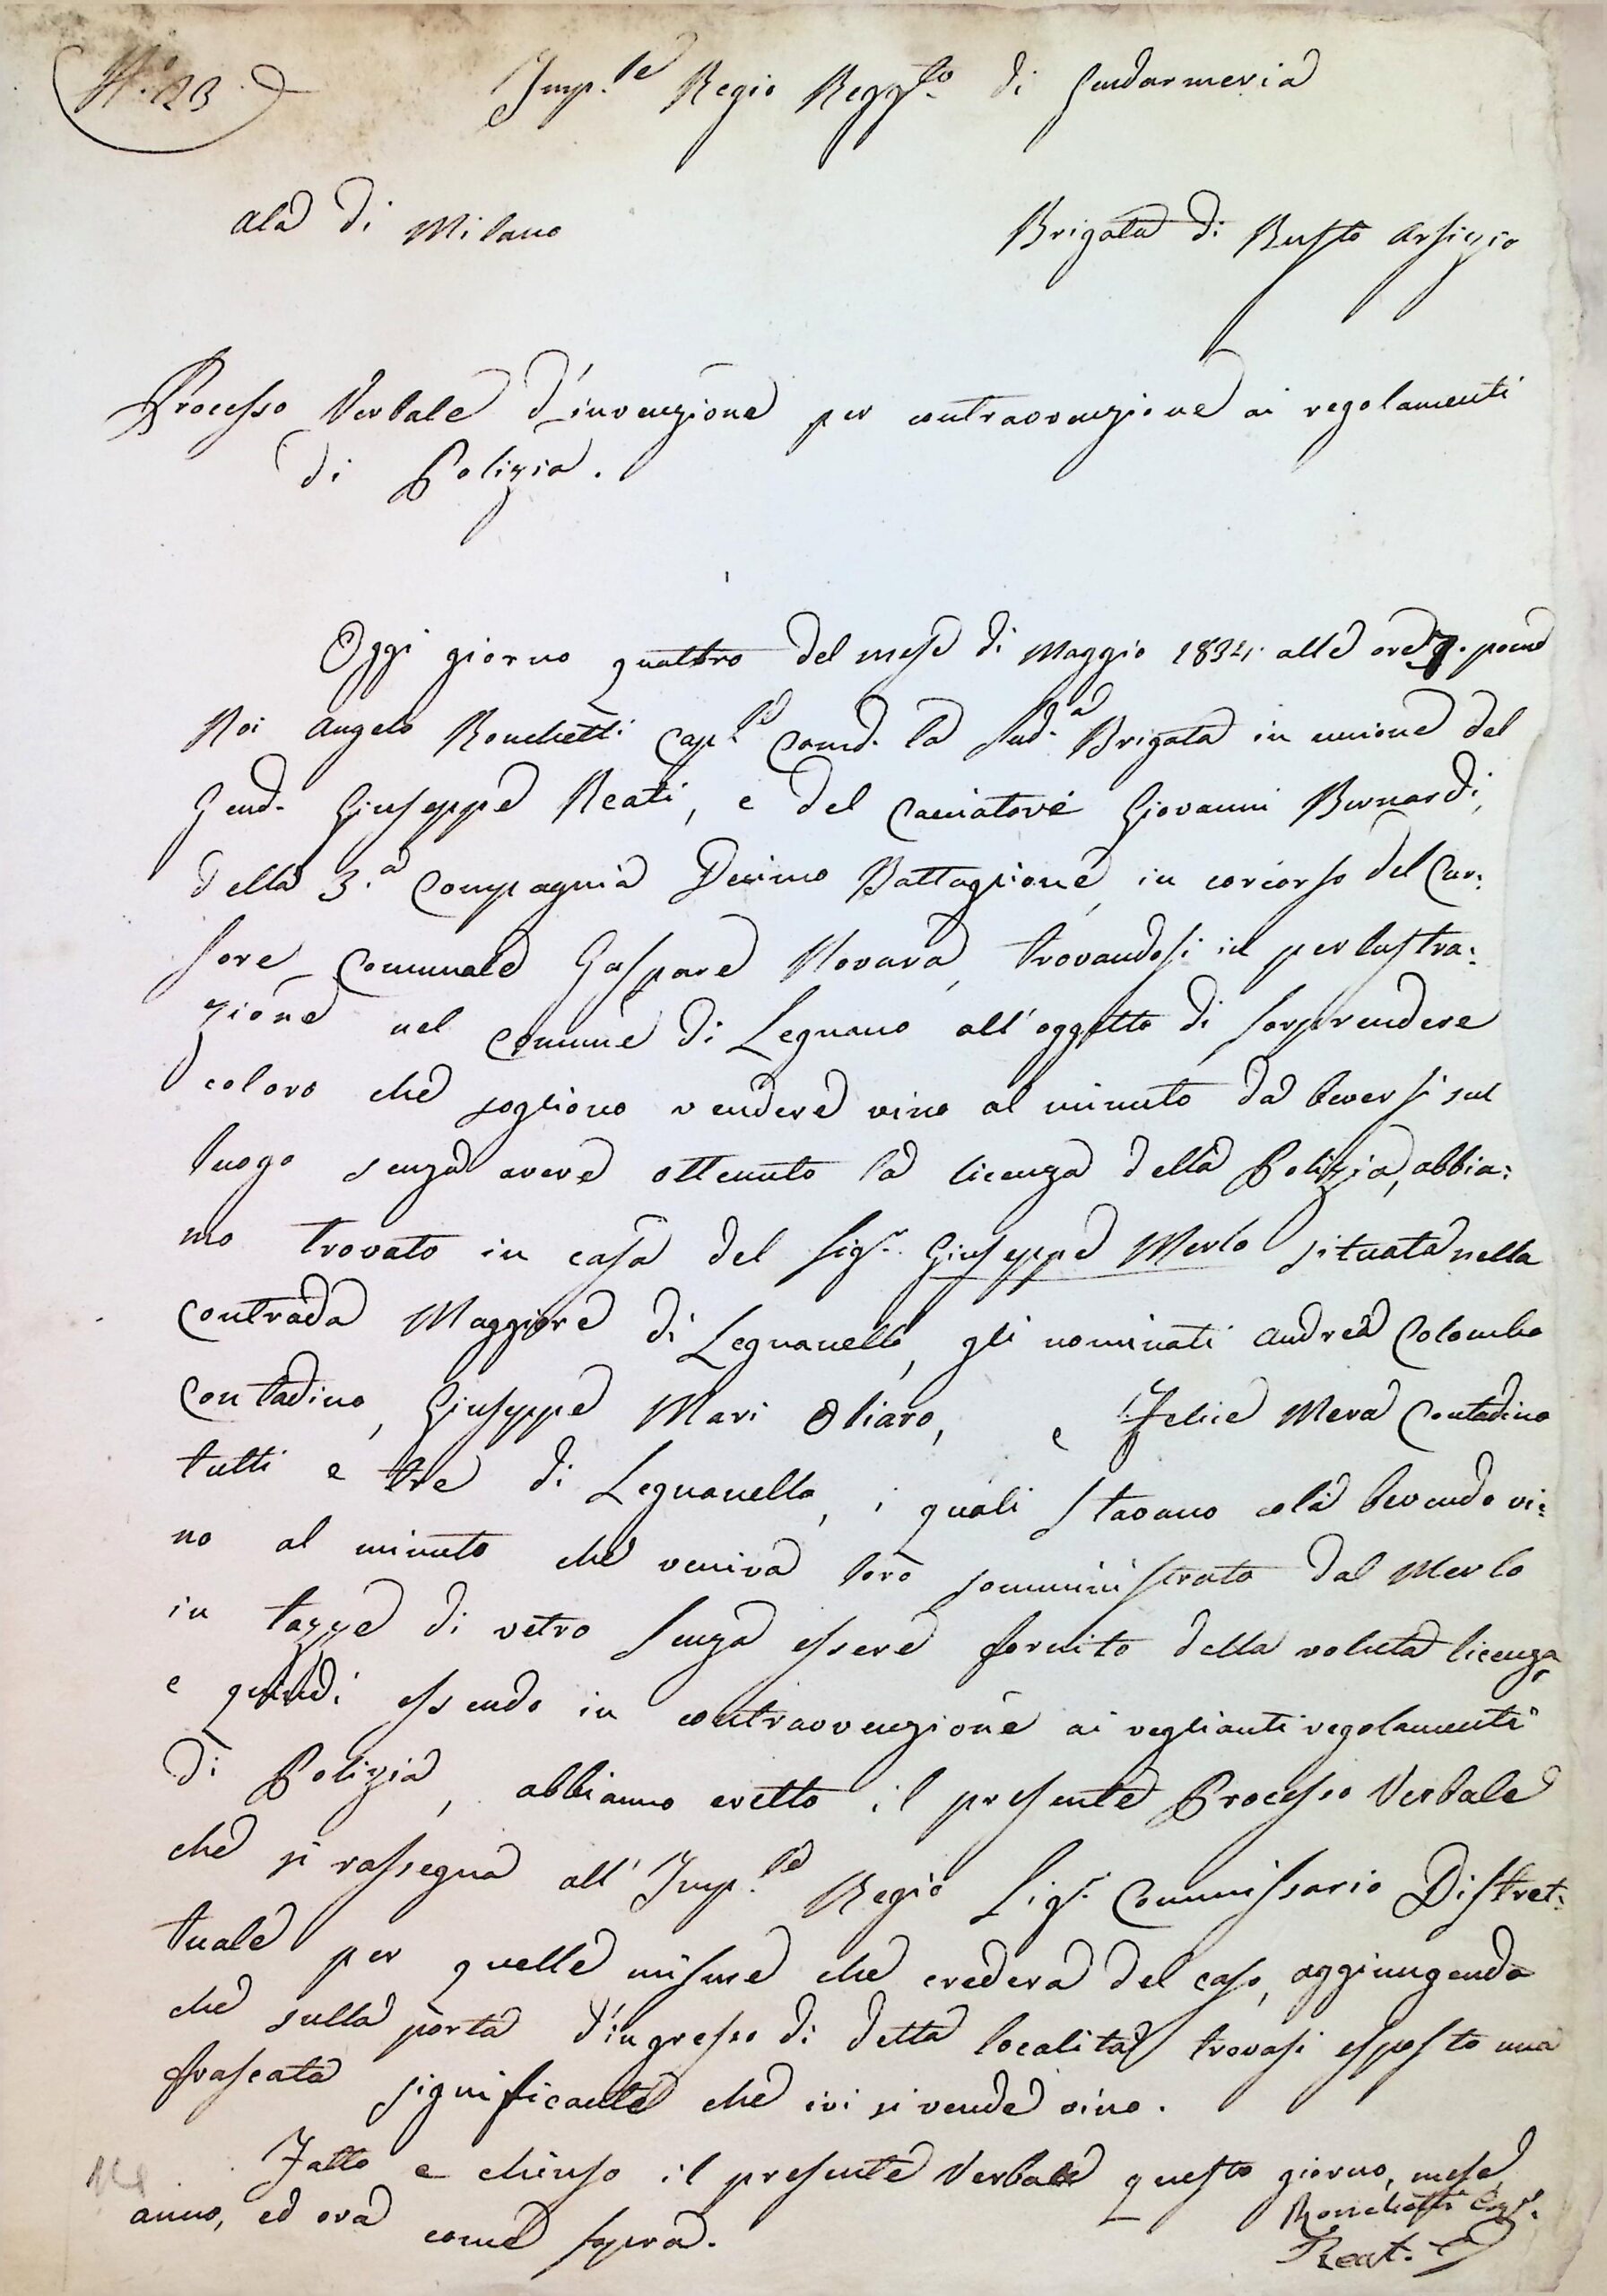 N.º 23
Imp.le Regio Regg.to di Gendarmeria
Ala di Milano
Brigata di Busto Arsizio
Processo Verbale d'invenzione per contravvenzione ai regolamenti
di Polizia.
Oggi giorno quattro del mese di Maggio 1834. alle ore 7. pome
Noi Angelo Ronchetti Cap.le Comd. la Sud.a Brigata in unione del
Gend. Giuseppe Reati, e del Cacciatore Giovanni Bernardi,
della 3.a Compagnia Decimo Battaglione, in corcorso del Cur:
sore Comunale Gaspare Novara, trovandosi in perlustra:
zione nel Comune di Legnano all'oggetto di sorprendere
coloro che sogliono vendere vino al minuto da beversi sul
luogo senza avere ottenuto la licenza della Polizia, abbia:
mo trovato in casa del Sig.r Giuseppe Merlo situata nella
Contrada Maggiore di Legnanello, gli nominati Andrea Colombo
Contadino, Giuseppe Mari Oliaro, e Felice Mera Contadino
tutti e tre di Legnanello, i quali stavano colà bevendo vi:
no al minuto che veniva loro somministrato dal Merlo
in tazze di vetro senza essere fornito della voluta licenza,
e quindi essendo in contravvenzione ai veglianti regolamenti
di Polizia, abbiamo eretto il presente Processo Verbale
che si rassegna all'Imp.le Regio Sig.r Commissario Distret:
tuale per quelle misure che crederà del caso, aggiungendo
che sulla porta d'ingresso di detta località trovasi esposto una
frascata significante che ivi si vende vino.
Fatto e chiuso il presente Verbale questo giorno, mese
anno, ed ora come sopra.
Ronchetti Cap.l
Reat.